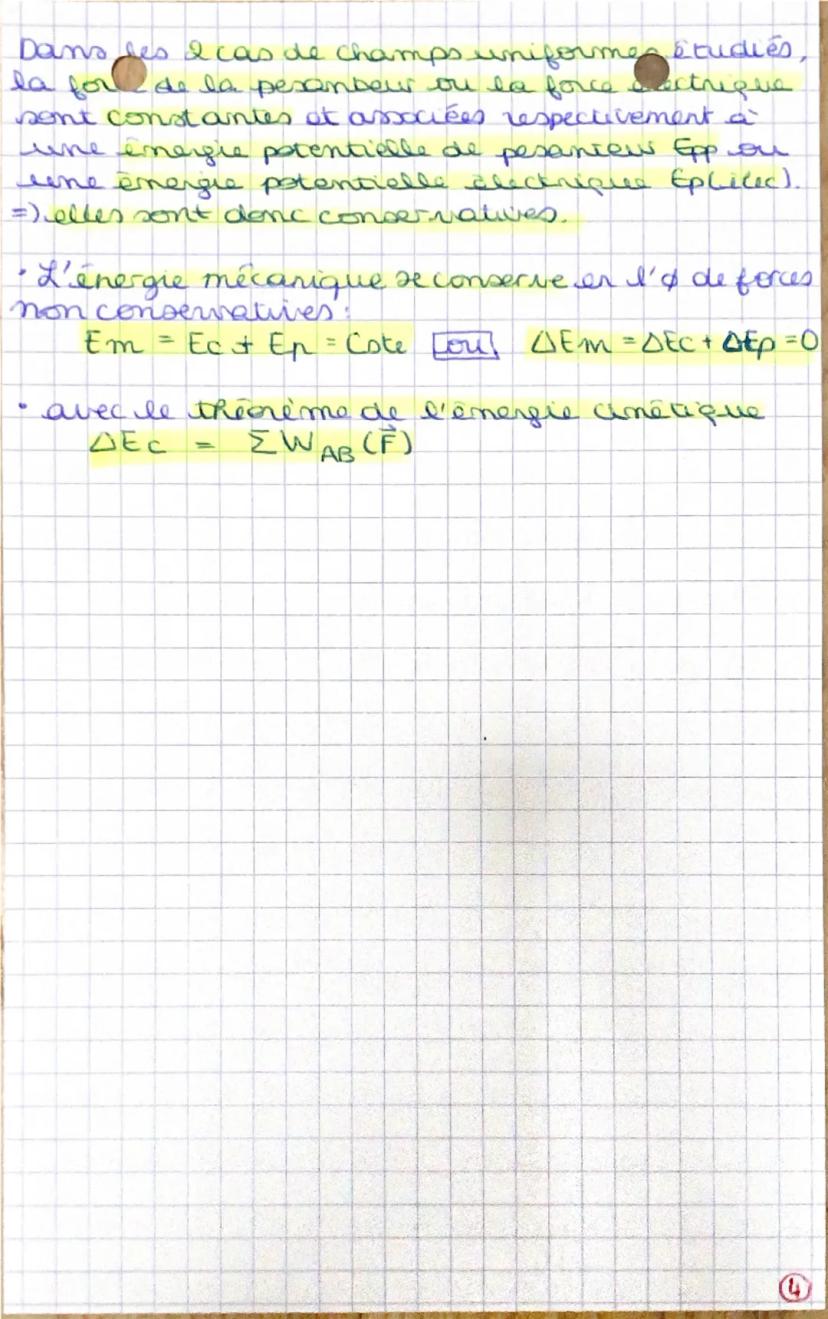 Dans les 2 cas de champs uniformes étudiés,
la force de la pesanteur ou la force électrique
sont constantes et associées respectivement à
une énergie potentielle de pesanteur Epp ou
une énergie potentielle électrique Ep(élec).
=) elles sont donc conservatives.
• L'énergie mécanique se conserve en l'∅ de forces
non conservatives :
Em = Ec + Ep = Cste ou ΔEm = ΔEc + ΔEp = 0
• avec le théorème de l'énergie cinétique
ΔEc = ΣW AB (F⃗)
4